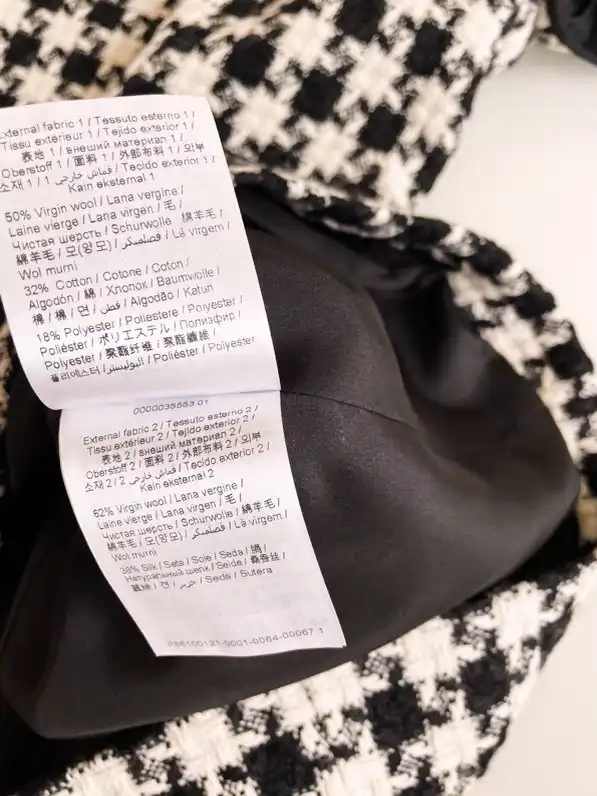 External fabric 1 / Tessuto esterno 1 /
Tissu extérieur 1 / Tejido exterior 1 /
表地 1 / внешний материал 1 /
Oberstoff 1 / 面料 1 / 外部布料 1 / 외부
소재 1 / 1 قماش خارجي / Tecido exterior 1 /
Kain eksternal 1
50% Virgin wool / Lana vergine /
Laine vierge / Lana virgen / 毛 /
Чистая шерсть / Schurwolle 绵羊毛 /
綿羊毛 / 모(양모) / / Lã virgem /
Wol murni
32% Cotton / Cotone / Coton /
Algodón / 綿 / Хлопок / Baumwolle /
棉 / 棉 / 면 / قطن / Algodão / Katun
18% Polyester / Poliestere / Polyester /
Poliéster / ポリエステル / Полиэфир /
Polyester / 聚酯纤维 / 聚酯纖維 /
폴리에스터 / البوليستر / Poliéster / Polyester
0000035553 01
External fabric 2 / Tessuto esterno 2 /
Tissu extérieur 2 / Tejido exterior 2 /
表地 2 / внешний материал 2 /
Oberstoff 2 / 面料 2 / 外部布料 2 / 외부
소재 2 / 2 قماش خارجي / Tecido exterior 2 /
Kain eksternal 2
62% Virgin wool / Lana vergine /
Laine vierge / Lana virgen / 毛 /
Чистая шерсть / Schurwolle / 绵羊毛 /
綿羊毛 / 모(양모) / / Lã virgem /
Wol murni
38% Silk / Seta / Soie / Seda / 絹 /
Натуральный шелк / Seide / 桑蚕丝 /
蠶絲 / 견 / حرير / Seda / Sutera
P66100121-0001-0064-00067 1